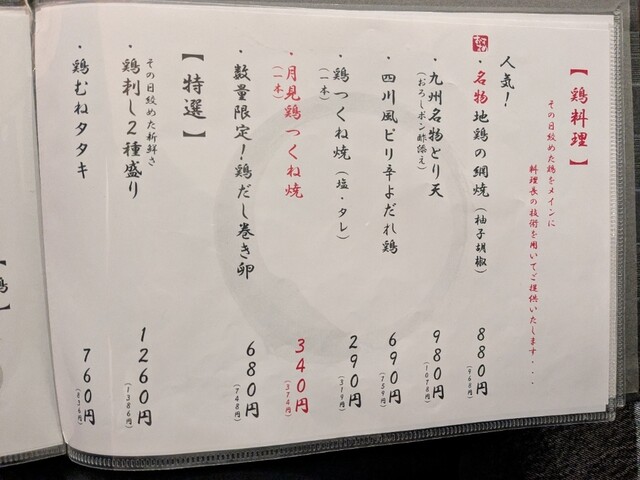 【鶏料理】
その日絞めた鶏をメインに
料理長の技術を用いてご提供いたします・・・
人気!
・名物地鶏の網焼(柚子胡椒) 880円
(968円)
・九州名物とり天 980円
(おろしポン酢添え) (1078円)
・四川風ピリ辛よだれ鶏 690円
(759円)
・鶏つくね焼(塩・タレ) 290円
(一本) (319円)
・月見鶏つくね焼 340円
(一本) (374円)
・数量限定!鶏だし巻き卵 680円
(748円)
【特選】
その日絞めた新鮮さ
・鶏刺し2種盛り 1260円
(1386円)
・鶏むねタタキ 760円
(836円)